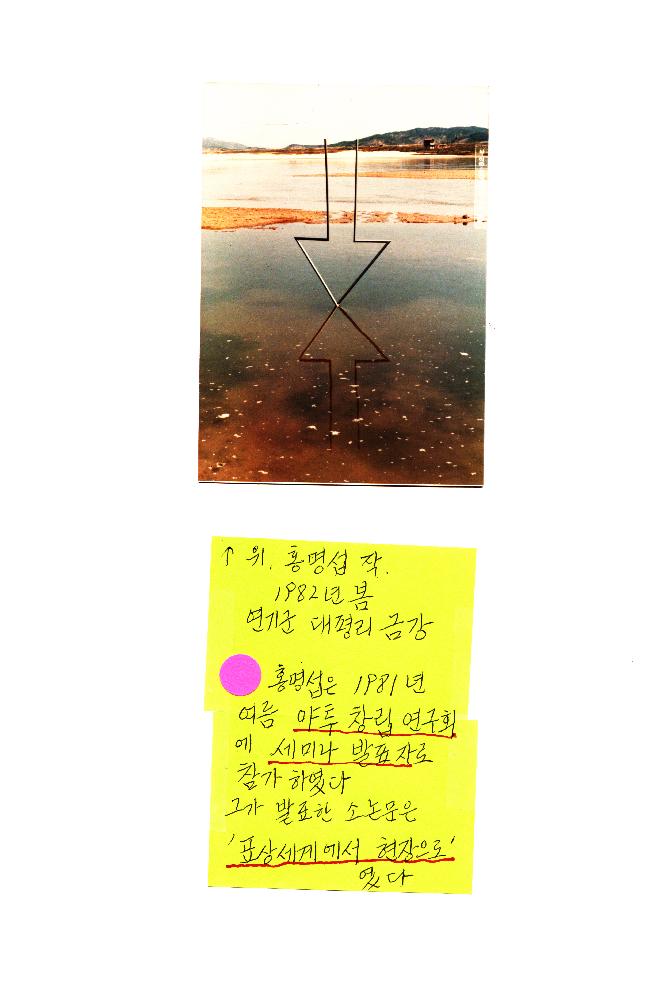 ↑ 위. 홍명섭 작.
1982년 봄
연기군 대평리 금강
홍명섭은 1981년
여름 야투 창립 연구회
에 세미나 발표자로
참가 하였다
그가 발표한 소논문은
'표상세계에서 현장으로'
였다